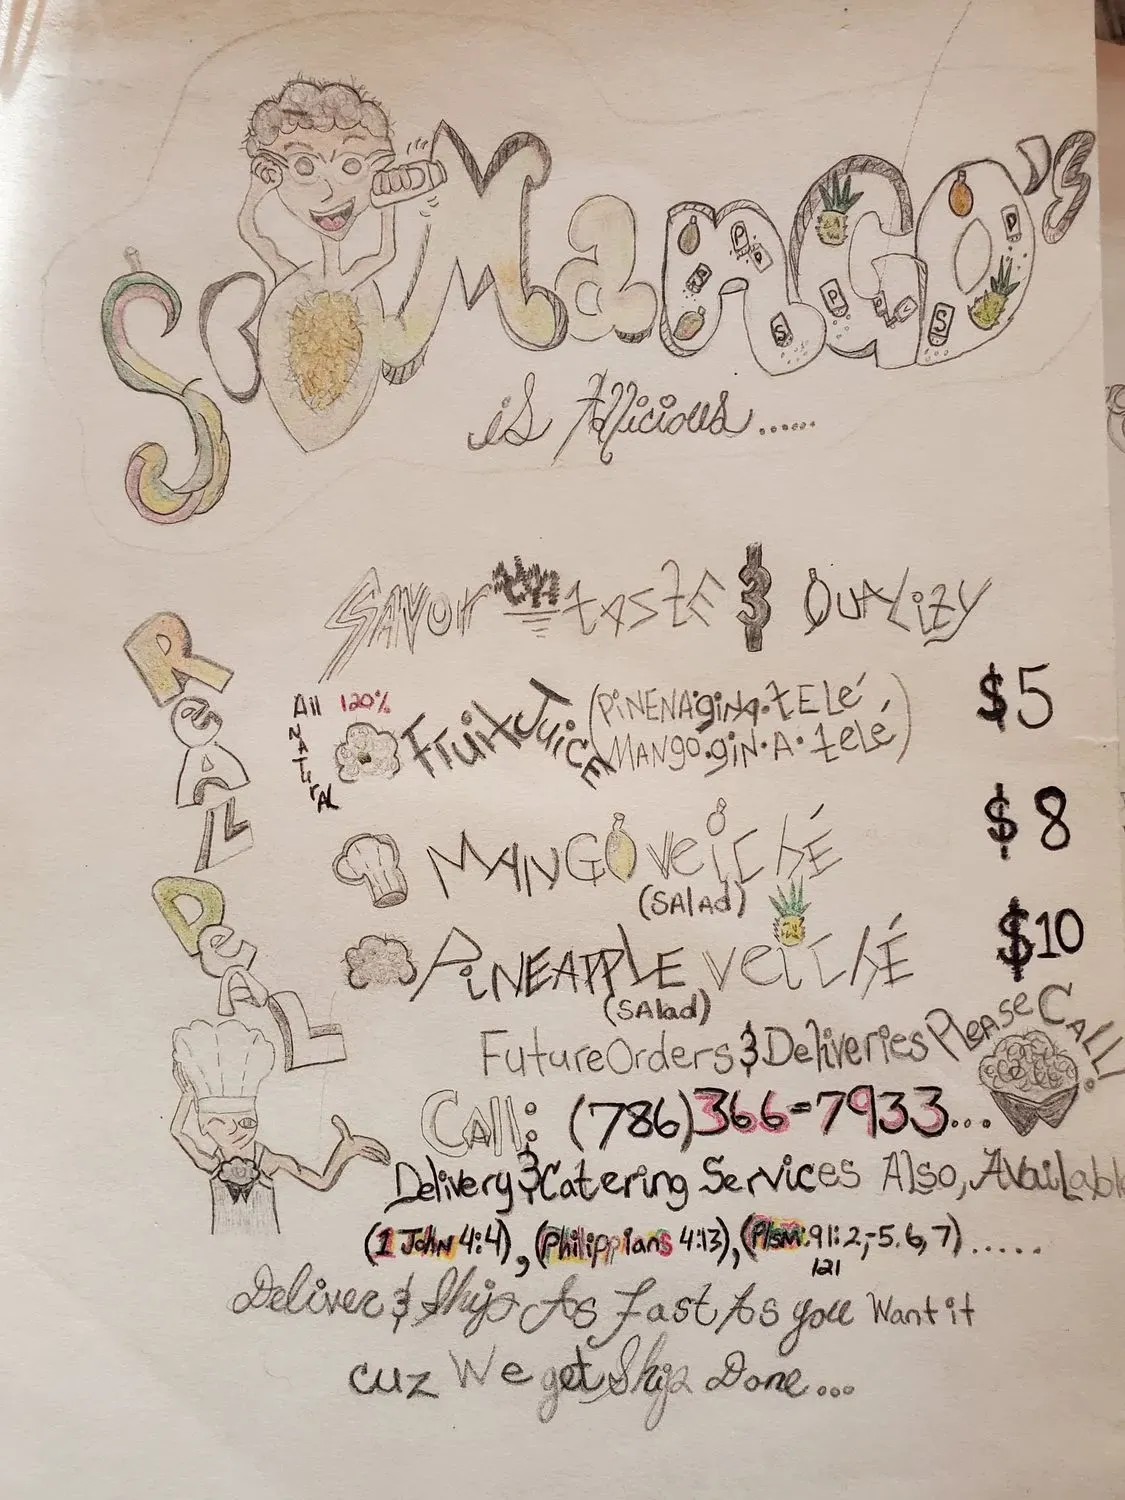 So Mango's
is Allicious......
Savor the taste & Quality
Real Deal
All Natural
120%
Fruit Juice (PiNENAgiNA•tELé
MANgo•giN•A•telé)
$5
MANGO veiché
(SAlad)
$8
PiNEAPPLE veiché
(SAlad)
$10
Future Orders & Deliveries Please Call!
Call: (786)366-7933...
Delivery & Catering Services Also, Available
(1 John 4:4), (Philippians 4:13), (Plsm:91:2,-5.6,7).....
121
Deliver & Ship As Fast As you Want it
cuz We get Ship Done...